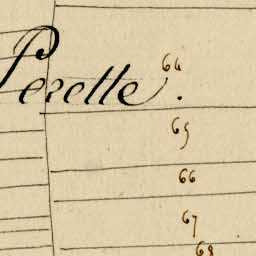 64
Perette.
65
66
67
68